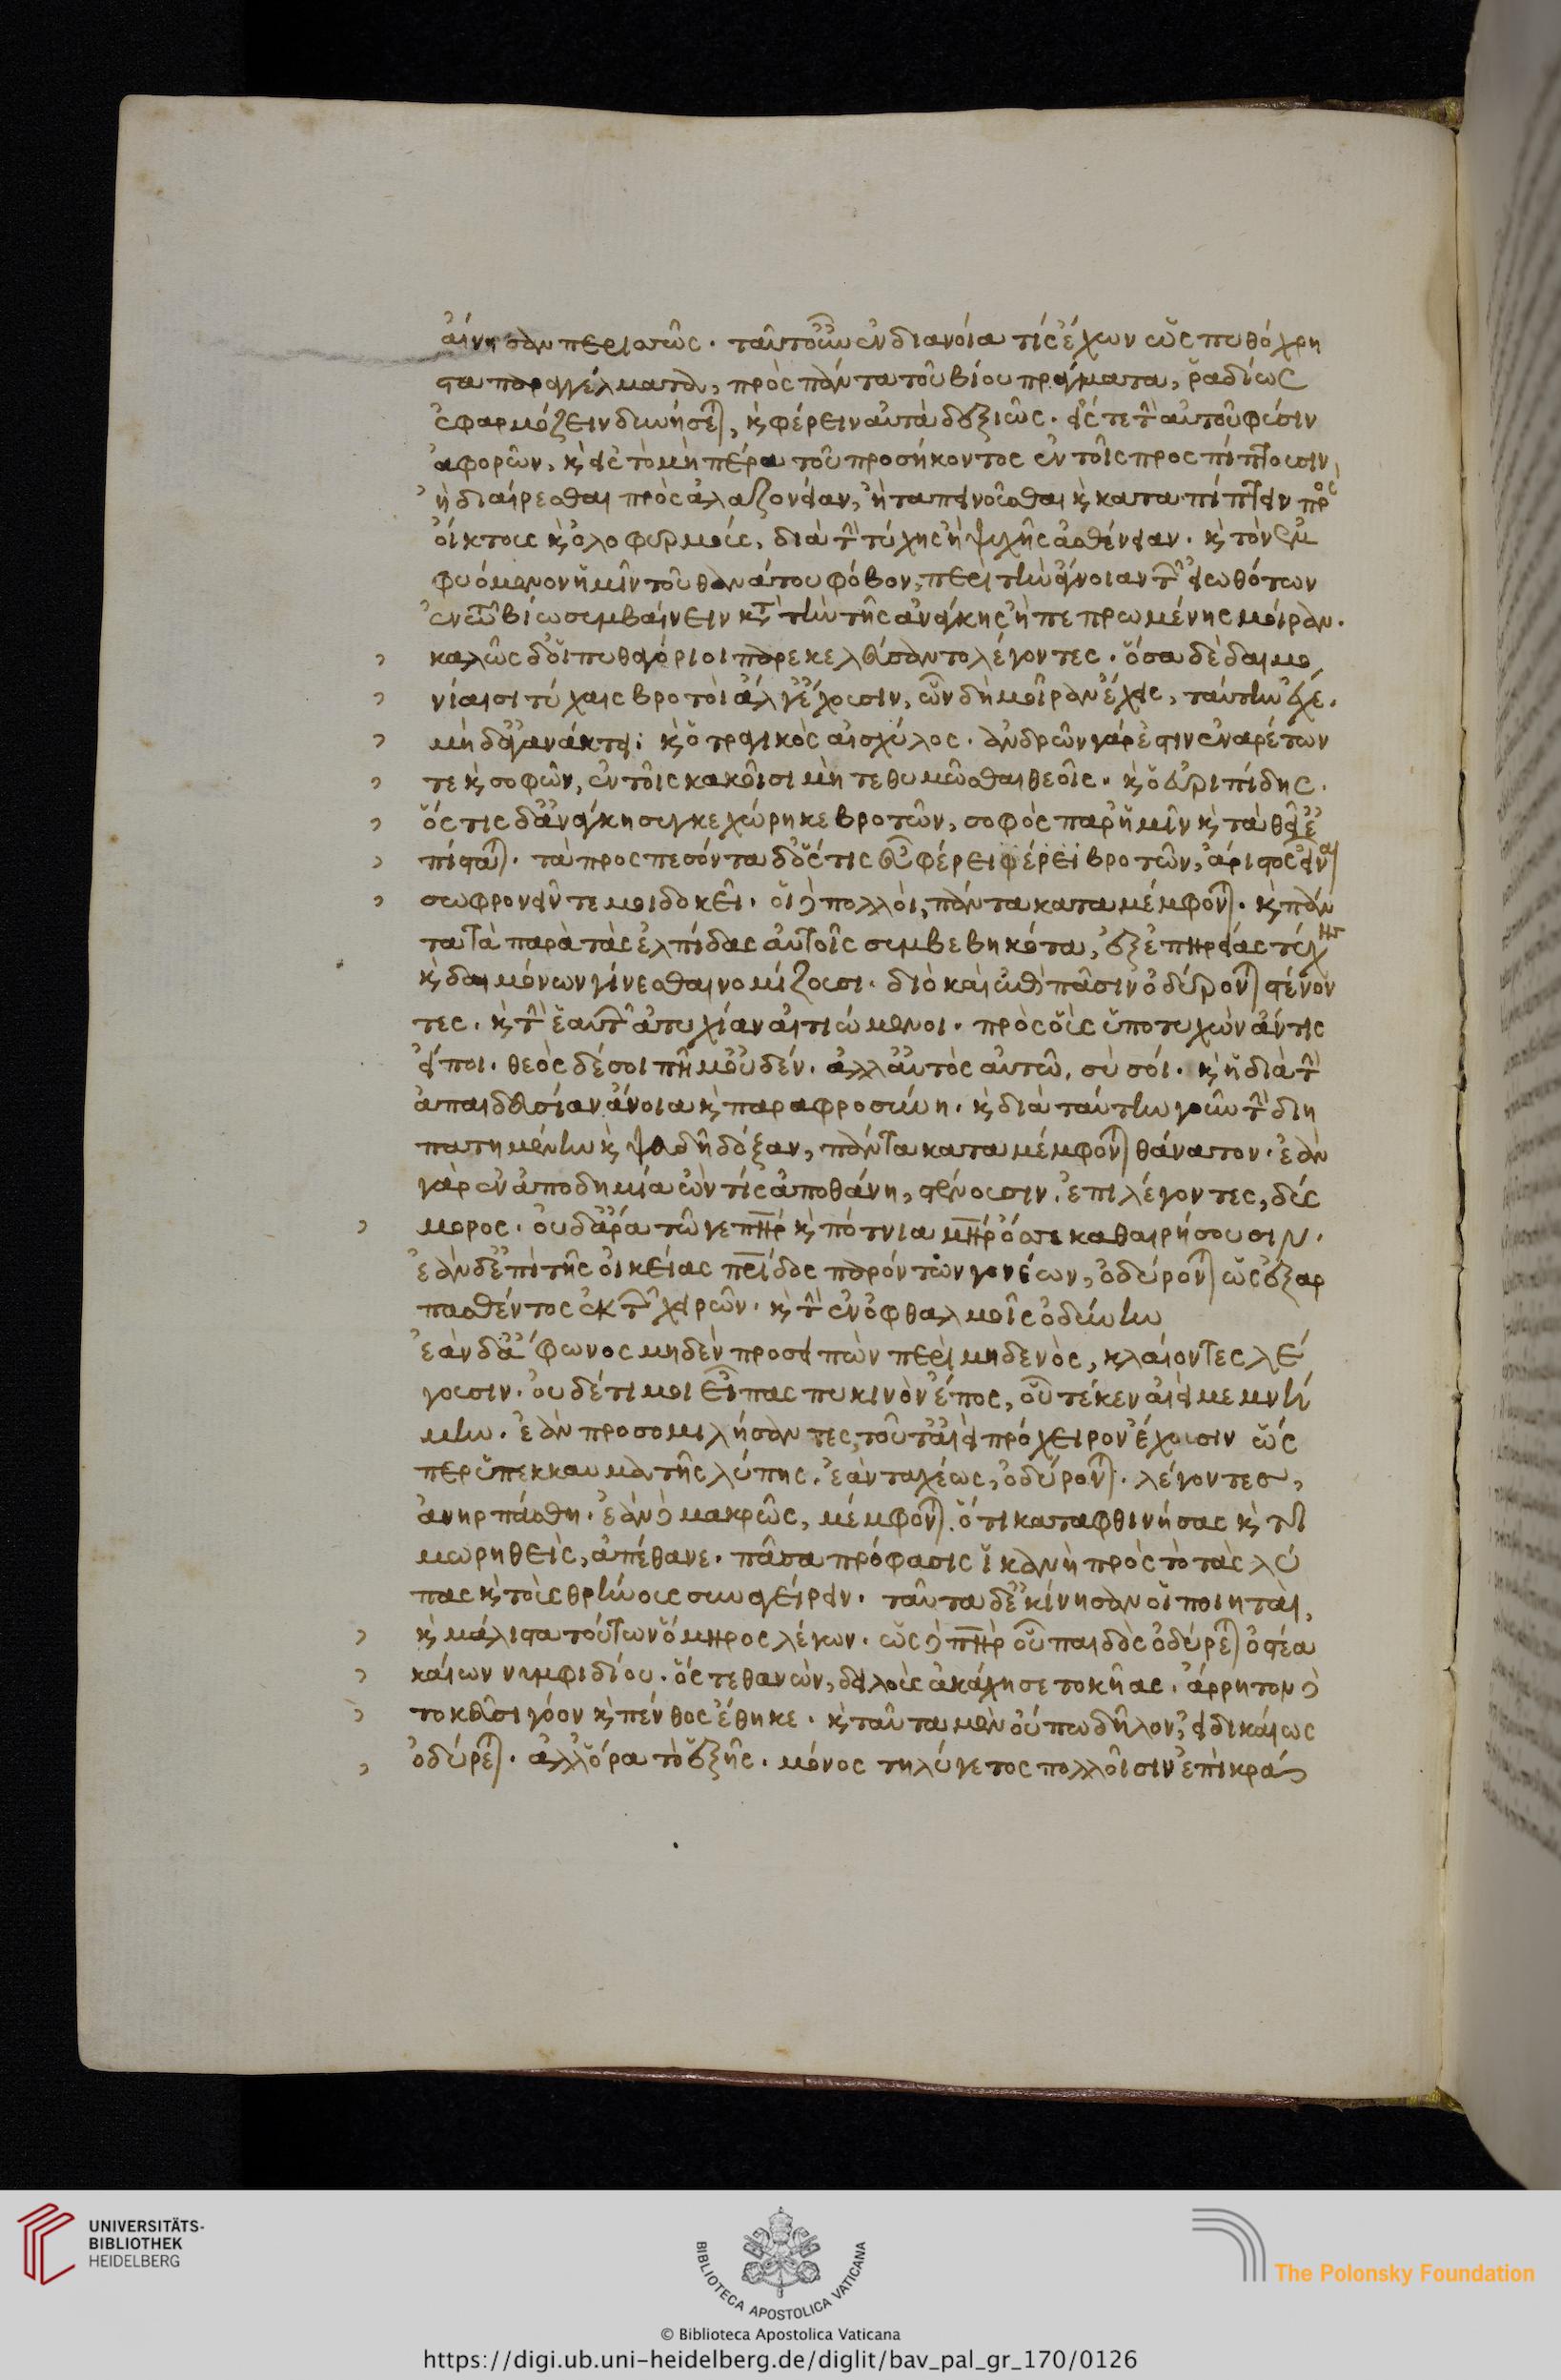 αἴνησαν περισσῶς. ταῦτ' οὖν ἐν διανοίᾳ τίς ἔχων ὡς πυθόχρη
στα παραγγέλματα, πρὸς πάντα τοῦ βίου πράγματα, ῥαδίως
ἐφαρμόζειν δυνήσεται, καὶ φέρειν αὐτὰ δεξιῶς. εἴς τε τὴν αὐτοῦ φύσιν
ἀφορῶν, καὶ εἰς τὸ μὴ πέρα τοῦ προσήκοντος ἐν τοῖς προσπίπτουσιν
ἢ διαίρεσθαι πρὸς ἀλαζονείαν, ἢ ταπεινοῦσθαι καὶ καταπίπτειν πρὸς
οἴκτους καὶ ὀλοφυρμοὺς, διὰ τὴν τύχης ἢ ψυχῆς ἀσθένειαν. καὶ τὸν ἐμ
φυόμενον ἡμῖν τοῦ θανάτου φόβον, περὶ τὴν ἄγνοιαν τῶν εἰωθότων
ἐν τῷ βίῳ συμβαίνειν κατὰ τὴν τῆς ἀνάγκης ἢ πεπρωμένης μοῖραν.
καλῶς δ' οἱ πυθαγόριοι παρεκελεύσαντο λέγοντες. ὅσα δὲ δαιμο
νίαισι τύχαις βροτοὶ ἄλγε' ἔχουσιν, ὧν δὴ μοῖραν ἔχῃς, ταύτην ἔχε.
μὴ δ' ἀγανάκτει· καὶ ὁ τραγικὸς αἰσχύλος. ἀνδρῶν γάρ ἐστιν ἐναρέτων
τε καὶ σοφῶν, ἐν τοῖς κακοῖσι μὴ τεθυμῶσθαι θεοῖς. καὶ ὁ εὐριπίδης.
ὅς τις δ' ἀνάγκῃ συγκεχώρηκε βροτῶν, σοφὸς παρ' ἡμῖν καὶ τὰ θεῖ' ἐ
πίσταται. τὰ προσπεσόντα δ' ὅς τις εὖ φέρει φέρει βροτῶν, ἄριστος εἶναι
σωφρονεῖν τέ μοι δοκεῖ. οἱ δὲ πολλοὶ, πάντα καταμέμφονται. καὶ πάν
τα τὰ παρὰ τὰς ἐλπίδας αὐτοῖς συμβεβηκότα, ἐξ ἐπηρείας τύχης
καὶ δαιμόνων γίνεσθαι νομίζουσι. διὸ καὶ ἐπὶ πᾶσιν ὀδύρονται στένον
τες. καὶ τὴν ἑαυτῶν ἀτυχίαν αἰτιώμενοι. πρὸς οὓς ὑποτυχὼν ἄν τις
εἴποι. θεὸς δέ σοι πῆμ' οὐδέν. ἀλλ' αὐτὸς αὐτῷ. σὺ σοί. καὶ ἡ διὰ τὴν
ἀπαιδευσίαν ἄνοια καὶ παραφροσύνη. καὶ διὰ ταύτην γοῦν τὴν διη
πατημένην καὶ ψευδῆ δόξαν, πάντα καταμέμφονται θάνατον. ἐὰν
γὰρ ἐν ἀποδημίᾳ ὤν τίς ἀποθάνῃ, στένουσιν. ἐπιλέγοντες, δύς
μορος. οὐδ' ἄρα τῷ γε πατὴρ καὶ πότνια μήτηρ ὄσσε καθαιρήσουσιν.
ἐὰν δ' ἐπὶ τῆς οἰκείας πατρίδος παρόντων γονέων, ὀδύρονται ὡς ἐξαρ
πασθέντος ἐκ τῶν χειρῶν. καὶ τὴν ἐν ὀφθαλμοῖς ὀδύνην
ἐὰν δ' ἄφωνος μηδὲν προσειπὼν περὶ μηδενὸς, κλαίοντες λέ
γουσιν. οὐδέ τι μοι εἶπας πυκινὸν ἔπος, οὗ τέ κεν αἰεὶ μεμνῄ
μην. ἐὰν προσομιλήσαντες, τοῦτ' αἰεὶ πρόχειρον ἔχουσιν ὥς
περ ὑπέκκαυμα τῆς λύπης. ἐὰν ταχέως, ὀδύρονται. λέγοντες,
ἀνηρπάσθη. ἐὰν δὲ μακρῶς, μέμφονται. ὅτι καταφθινήσας καὶ τι
μωρηθεὶς, ἀπέθανε. πᾶσα πρόφασις ἱκανὴ πρὸς τὸ τὰς λύ
πας καὶ τοὺς θρήνους συναγείρειν. ταῦτα δ' ἐκίνησαν οἱ ποιηταὶ,
καὶ μάλιστα τούτων ὅμηρος λέγων. ὡς δὲ πατὴρ οὗ παιδὸς ὀδύρεται ὀστέα
καίων νυμφιδίου. ὅς τε θανὼν, δειλοὺς ἀκάχησε τοκῆας. ἄρρητον δὲ
τοκεῦσι γόον καὶ πένθος ἔθηκε. καὶ ταῦτα μὲν οὔπω δῆλον, εἰ δικαίως
ὀδύρεται. ἀλλ' ὅρα τὸ ἑξῆς. μόνος τηλύγετος πολλοῖσιν ἐπὶ κρά
UNIVERSITÄTS-
BIBLIOTHEK
HEIDELBERG
BIBLIOTECA APOSTOLICA VATICANA
The Polonsky Foundation
© Biblioteca Apostolica Vaticana
https://digi.ub.uni-heidelberg.de/diglit/bav_pal_gr_170/0126